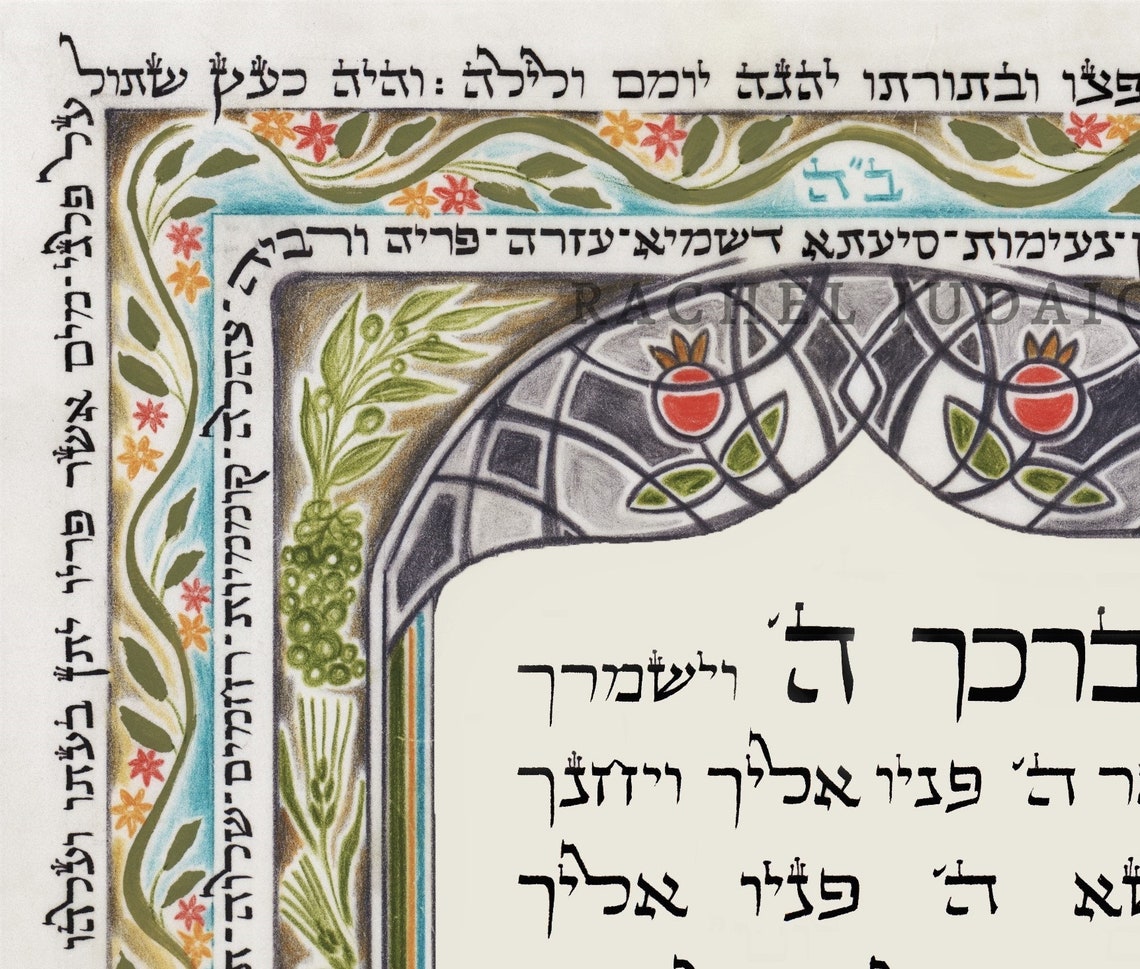 פצו ובתורתו יהגה יומם ולילה: והיה כעץ שתול
על פלגי־מים אשר פריו יתן בעתו ועלהו
ב"ה
נעימות־סיעתא דשמיא־עזרה־פריה ורביה־
צהלה־קוממיות־רחמים־שלוה־
RACHEL JUDAIC
ברכך ה׳ וישמרך
ר ה׳ פניו אליך ויחנך
שא ה׳ פניו אליך